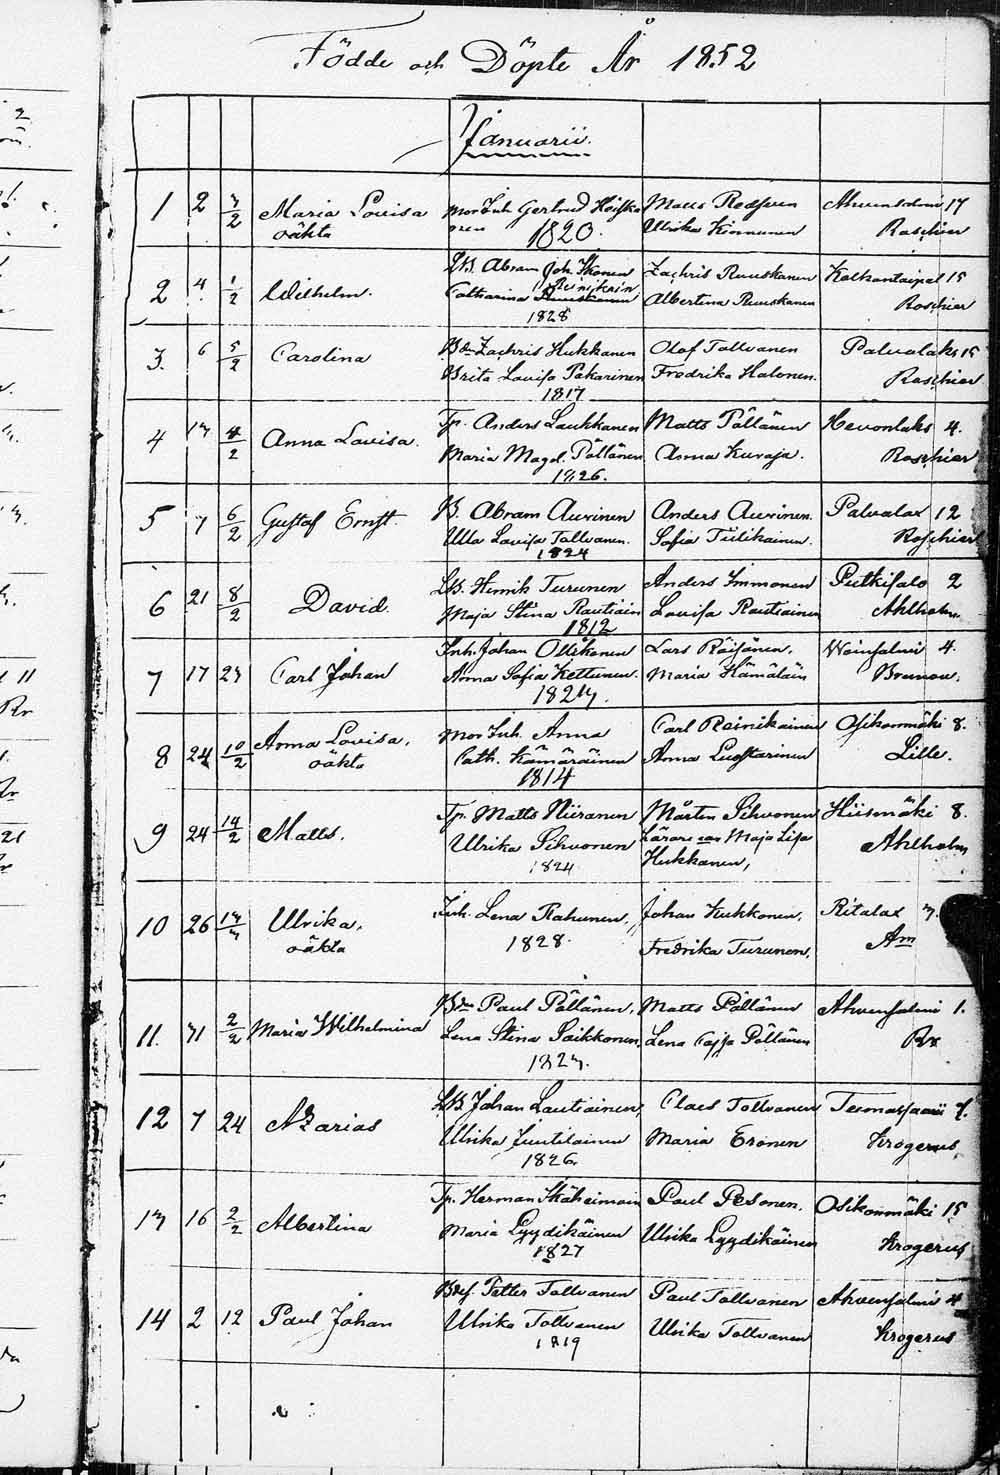 Födde och Döpte År 1852
Januarii.
1 2 3/2 Maria Lovisa oäkta Mor Inh. Gertrud Heiska nen 1820. Matts Ulrika Kinnunen Ahvensalmi 17 Roschier
2 4 1/2 Wilhelm. LB. Abram Joh. Ikonen Catharina Reinikain 1828 Zachris Ruuskanen Albertina Ruuskanen 15 Roschier
3. 6 5/2 Carolina Bdn Zachris Hukkanen Brita Lovisa Pakarinen 1817 Olof Tolvanen Fredrika Halonen. Palvalaks 15 Roschier
4 13 4/2 Anna Lovisa. Tp. Anders Laukkanen Maria Magd. Pöllänen 1826. Matts Pöllänen Anna Kuvaja. Hevonlaks 4. Roschier
5 7 6/2 Gustaf Ernst. B. Abram Auvinen Ulla Lovisa Tolvanen. 1824 Anders Auvinen. Sofia Tiilikainen. Palvalax 12 Roschier
6 21 8/2 David. LB. Henrik Turunen Maja Stina Rautiain 1812 Anders Immonen Lovisa Rautiainen Putkisalo 2 Ahlholm
7 17 23 Carl Johan Inh. Johan Ollikanen Anna Sofia Kettunen. 1823. Lars Räisänen. Maria Hämäläin 4. Brunou.
8 24 10/2 Anna Lovisa. oäkta Mor Inh. Anna Cath. Kämäräinen 1814 Carl Reinikainen Anna Luostarinen Osikonmäki 8. Lille.
9 24 14/2 Matts. Tp. Matts Niiranen Ulrika Sihvonen 1824 Mårten Sihvonen Maja Lisa Hukkanen, Hiismäki 8. Ahlholm
10 26 13/3 Ulrika, oäkta Inh. Lena Rahunen, 1828. Johan Kukkonen, Fredrika Turunen. Ritalax 3. Am
11. 31 2/2 Maria Wilhelmina Bdn Paul Pöllänen, Lena Stina Soikkonen. 1823. Matts Pöllänen Lena Cajsa Pöllänen Ahvensalmi 1. Rr
12 7 24 Azarias LB. Johan Lautiainen Ulrika Juutilainen 1826. Claes Tolvanen Maria Eronen Krogerus
13 16 2/2 Albertina Tp. Herman Maria Lyydikäinen 1827 Paul Pesonen. Ulrika Lyydikäinen Osikonmäki 15 Krogerus
14 2 12 Paul Johan Petter Tolvanen Ulrika Tolvanen 1819 Paul Tolvanen Ulrika Tolvanen Ahvensalmi 4 Krogerus